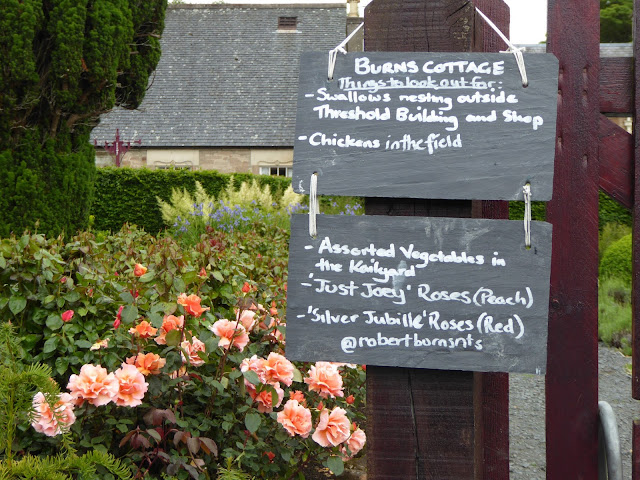 BURNS COTTAGE
Things to look out for:
- Swallows nesting outside
Threshold Building and Shop
- Chickens in the field
- Assorted Vegetables in
the Kailyard
- 'Just Joey' Roses (Peach)
- 'Silver Jubille' Roses (Red)
@robertburnsnts